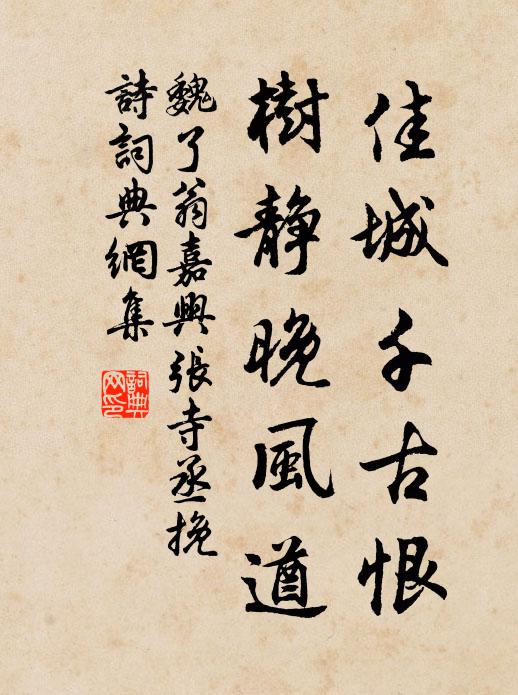 佳城千古恨
樹静晚風遒
魏了翁嘉興張寺丞挽
詩詞典網集
詞典網印